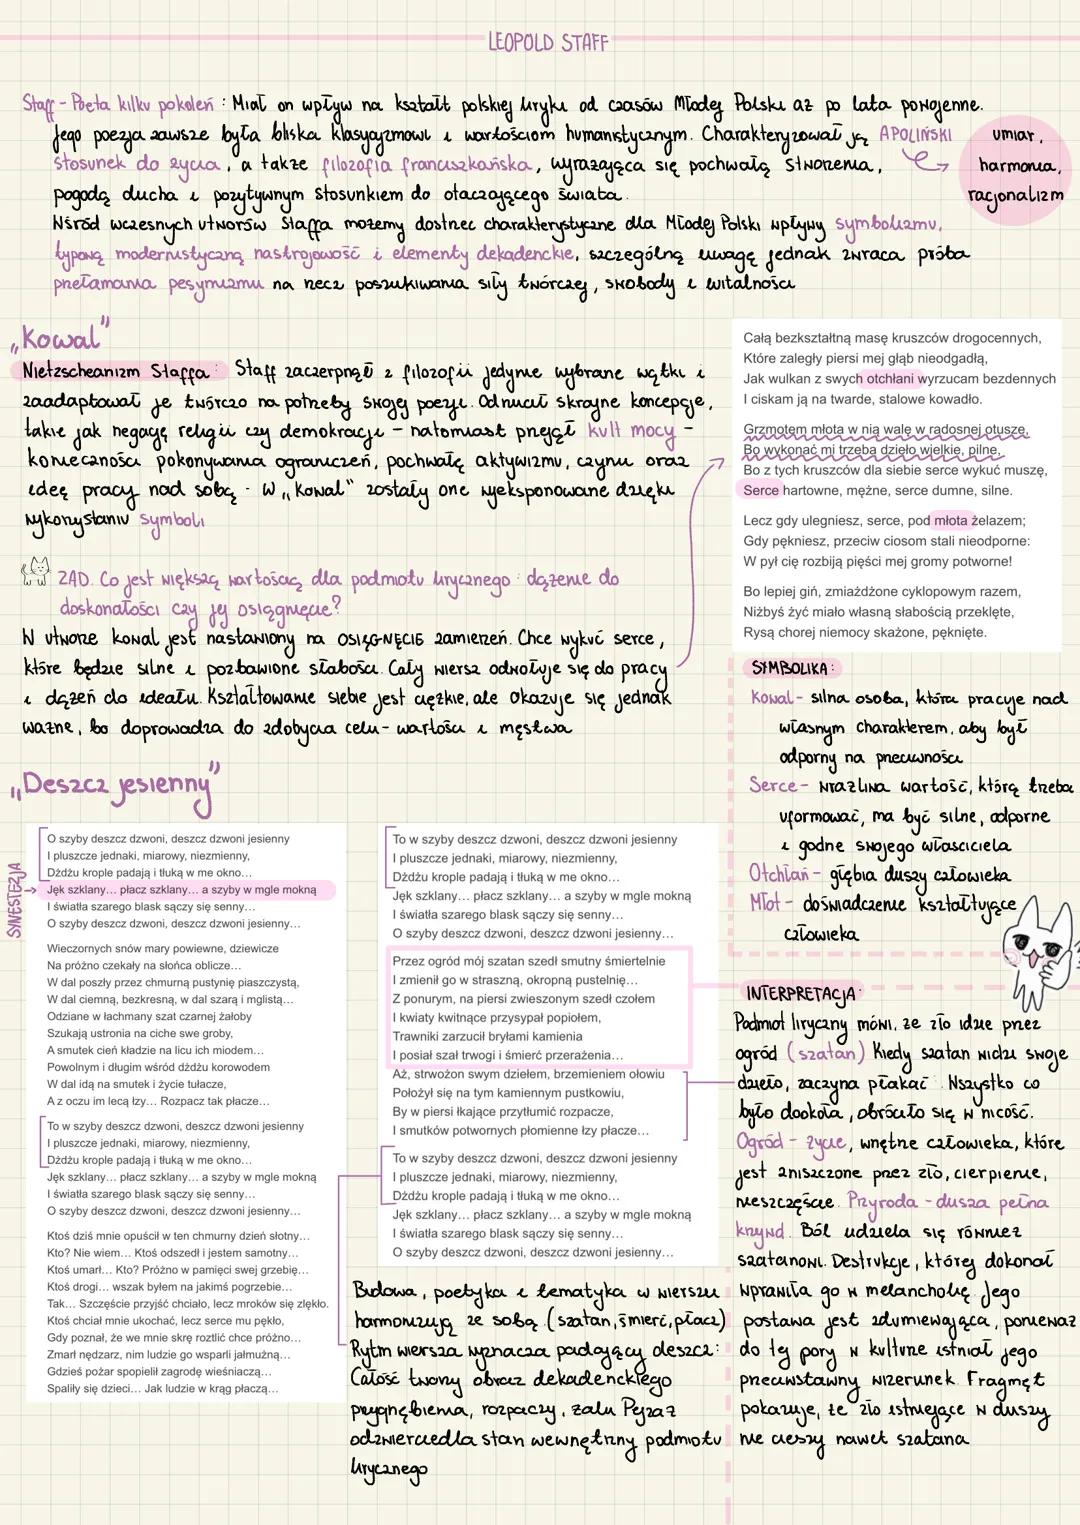 LEOPOLD STAFF
Staff - Poeta kilku pokoleń : Miał on wpływ na kształt polskiej liryki od czasów Młodej Polski aż po lata powojenne.
Jego poezja zawsze była bliska klasycyzmowi i wartościom humanistycznym. Charakteryzował ją APOLIŃSKI
stosunek do życia, a także filozofia franciszkańska, wyrażająca się pochwałą stworzenia,
pogodą ducha i pozytywnym stosunkiem do otaczającego świata.
umiar,
harmonia,
racjonalizm
Wśród wczesnych utworów Staffa możemy dostrzec charakterystyczne dla Młodej Polski wpływy symbolizmu,
typową modernistyczną nastrojowość i elementy dekadenckie, szczególną uwagę jednak zwraca próba
przełamania pesymizmu na rzecz poszukiwania siły twórczej, swobody i witalności
„Kowal"
Nietzscheanizm Staffa: Staff zaczerpnął z filozofii jedynie wybrane wątki i
zaadaptował je twórczo na potrzeby swojej poezji. Odrzucił skrajne koncepcje,
takie jak negację religii czy demokracji - natomiast przejął kult mocy -
konieczności pokonywania ograniczeń, pochwałę aktywizmu, czynu oraz
ideę pracy nad sobą. W „Kowal" zostały one wyeksponowane dzięki
wykorzystaniu symboli
ZAD. Co jest większą wartością dla podmiotu lirycznego: dążenie do
doskonałości czy jej osiągnięcie?
W utworze kowal jest nastawiony na OSIĄGNĘCIE zamierzeń. Chce wykuć serce,
które będzie silne i pozbawione słabości. Cały wiersz odwołuje się do pracy
i dążeń do ideału. Kształtowanie siebie jest ciężkie, ale okazuje się jednak
ważne, bo doprowadza do zdobycia celu - wartości i męstwa
Całą bezkształtną masę kruszców drogocennych,
Które zaległy piersi mej głąb nieodgadłą,
Jak wulkan z swych otchłani wyrzucam bezdennych
I ciskam ją na twarde, stalowe kowadło.
Grzmotem młota w nią walę w radosnej otusze,
Bo wykonać mi trzeba dzieło wielkie, pilne,
Bo z tych kruszców dla siebie serce wykuć muszę,
Serce hartowne, mężne, serce dumne, silne.
Lecz gdy ulegniesz, serce, pod młota żelazem;
Gdy pękniesz, przeciw ciosom stali nieodporne:
W pył cię rozbiją pięści mej gromy potworne!
Bo lepiej giń, zmiażdżone cyklopowym razem,
Niżbyś żyć miało własną słabością przeklęte,
Rysą chorej niemocy skażone, pęknięte.
SYMBOLIKA:
Kowal - silna osoba, która pracuje nad
własnym charakterem, aby był
odporny na przeciwności
Serce - wrażliwa wartość, którą trzeba
uformować, ma być silne, odporne
i godne swojego właściciela
Otchłań - głębia duszy człowieka
Młot - doświadczenie kształtujące
człowieka
„Deszcz jesienny"
SYNESTEZJA
O szyby deszcz dzwoni, deszcz dzwoni jesienny
I pluszcze jednaki, miarowy, niezmienny,
Dżdżu krople padają i tłuką w me okno...
Jęk szklany... płacz szklany... a szyby w mgle mokną
I światła szarego blask sączy się senny...
O szyby deszcz dzwoni, deszcz dzwoni jesienny...
Wieczornych snów mary powiewne, dziewicze
Na próżno czekały na słońca oblicze...
W dal poszły przez chmurną pustynię piaszczystą,
W dal ciemną, bezkresną, w dal szarą i mglistą...
Odziane w łachmany szat czarnej żałoby
Szukają ustronia na ciche swe groby,
A smutek cień kładzie na licu ich miodem...
Powolnym i długim wśród dżdżu korowodem
W dal idą na smutek i życie tułacze,
A z oczu im lecą łzy... Rozpacz tak płacze...
To w szyby deszcz dzwoni, deszcz dzwoni jesienny
I pluszcze jednaki, miarowy, niezmienny,
Dżdżu krople padają i tłuką w me okno...
Jęk szklany... płacz szklany... a szyby w mgle mokną
I światła szarego blask sączy się senny...
O szyby deszcz dzwoni, deszcz dzwoni jesienny...
Ktoś dziś mnie opuścił w ten chmurny dzień słotny...
Kto? Nie wiem... Ktoś odszedł i jestem samotny...
Ktoś umarł... Kto? Próżno w pamięci swej grzebię...
Ktoś drogi... wszak byłem na jakimś pogrzebie...
Tak... Szczęście przyjść chciało, lecz mroków się zlękło.
Ktoś chciał mnie ukochać, lecz serce mu pękło,
Gdy poznał, że we mnie skrę roztlić chce próżno...
Zmarł nędzarz, nim ludzie go wsparli jałmużną...
Gdzieś pożar spopielił zagrodę wieśniaczą...
Spaliły się dzieci... Jak ludzie w krąg płaczą...
To w szyby deszcz dzwoni, deszcz dzwoni jesienny
I pluszcze jednaki, miarowy, niezmienny,
Dżdżu krople padają i tłuką w me okno...
Jęk szklany... płacz szklany... a szyby w mgle mokną
I światła szarego blask sączy się senny...
O szyby deszcz dzwoni, deszcz dzwoni jesienny...
Przez ogród mój szatan szedł smutny śmiertelnie
I zmienił go w straszną, okropną pustelnię...
Z ponurym, na piersi zwieszonym szedł czołem
I kwiaty kwitnące przysypał popiołem,
Trawniki zarzucił bryłami kamienia
I posiał szał trwogi i śmierć przerażenia...
Aż, strwożon swym dziełem, brzemieniem ołowiu
Położył się na tym kamiennym pustkowiu,
By w piersi łkające przytłumić rozpacze,
I smutków potwornych płomienne łzy płacze...
To w szyby deszcz dzwoni, deszcz dzwoni jesienny
I pluszcze jednaki, miarowy, niezmienny,
Dżdżu krople padają i tłuką w me okno...
Jęk szklany... płacz szklany... a szyby w mgle mokną
I światła szarego blask sączy się senny...
O szyby deszcz dzwoni, deszcz dzwoni jesienny...
Budowa, poetyka i tematyka w wierszu
harmonizują ze sobą. (szatan, śmierć, płacz)
Rytm wiersza wyznacza padający deszcz:
Całość tworzy obraz dekadenckiego
przygnębienia, rozpaczy, żalu Pejzaż
odzwierciedla stan wewnętrzny podmiotu
lirycznego
INTERPRETACJA:
Podmiot liryczny mówi, że zło idzie przez
ogród (szatan) Kiedy szatan widzi swoje
dzieło, zaczyna płakać. Wszystko co
było dookoła, obróciło się w nicość.
Ogród - życie, wnętrze człowieka, które
jest zniszczone przez zło, cierpienie,
nieszczęście. Przyroda - dusza pełna
krzywd. Ból udziela się również
szatanowi. Destrukcje, której dokonał
wprawiła go w melancholię. Jego
postawa jest zdumiewająca, ponieważ
do tej pory w kulturze istniał jego
przeciwstawny wizerunek. Fragmęt
pokazuje, że zło istniejące w duszy
nie cieszy nawet szatana